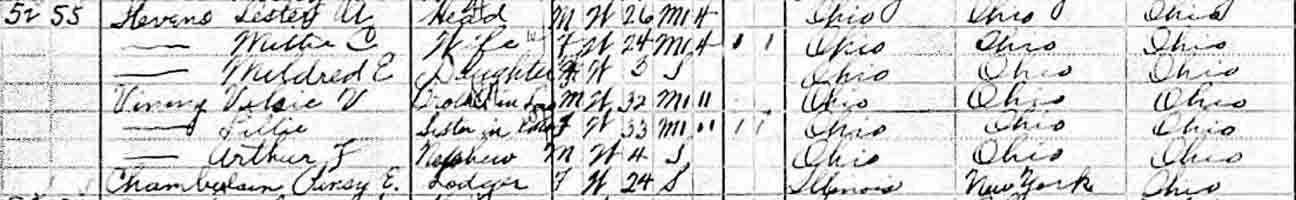 52 55 Stevens Lester A Head M W 26 M1 4 Ohio Ohio Ohio
— Mettie C Wife F W 24 M1 4 1 1 Ohio Ohio Ohio
— Mildred E Daughter F W 3 S Ohio Ohio Ohio
V Brother in Law M W 32 M1 11 Ohio Ohio Ohio
— Lillie Sister in Law F W 33 M1 11 1 1 Ohio Ohio Ohio
— Arthur F Nephew M W 4 S Ohio Ohio Ohio
Chamberlain E. Lodger F W 24 S Illinois New York Ohio